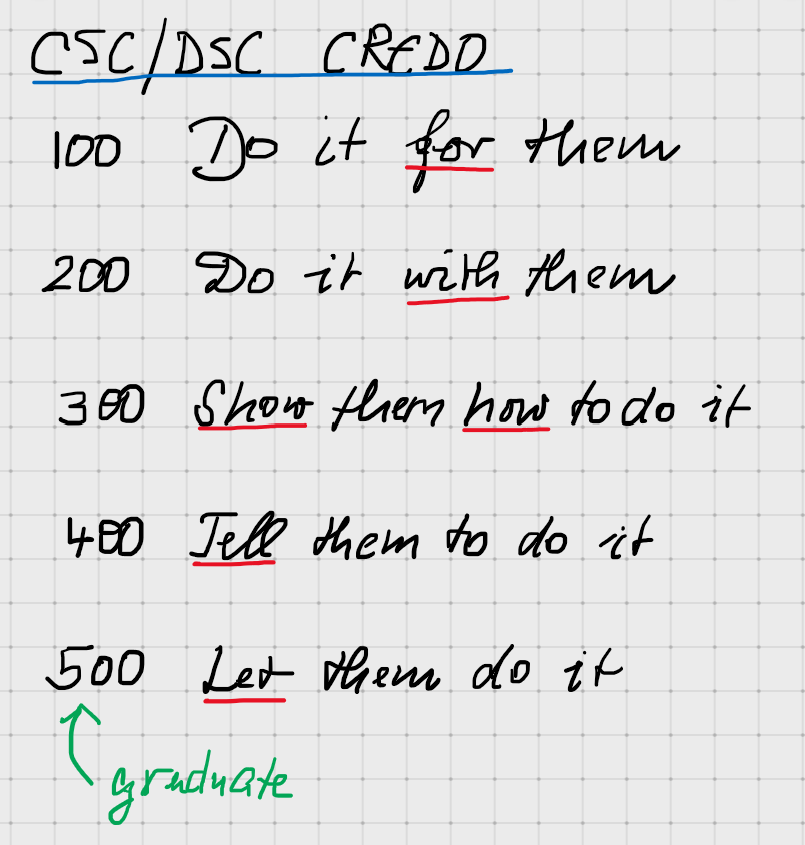 CSC/DSC CREDO
100 Do it for them
200 Do it with them
300 Show them how to do it
400 Tell them to do it
500 Let them do it
graduate